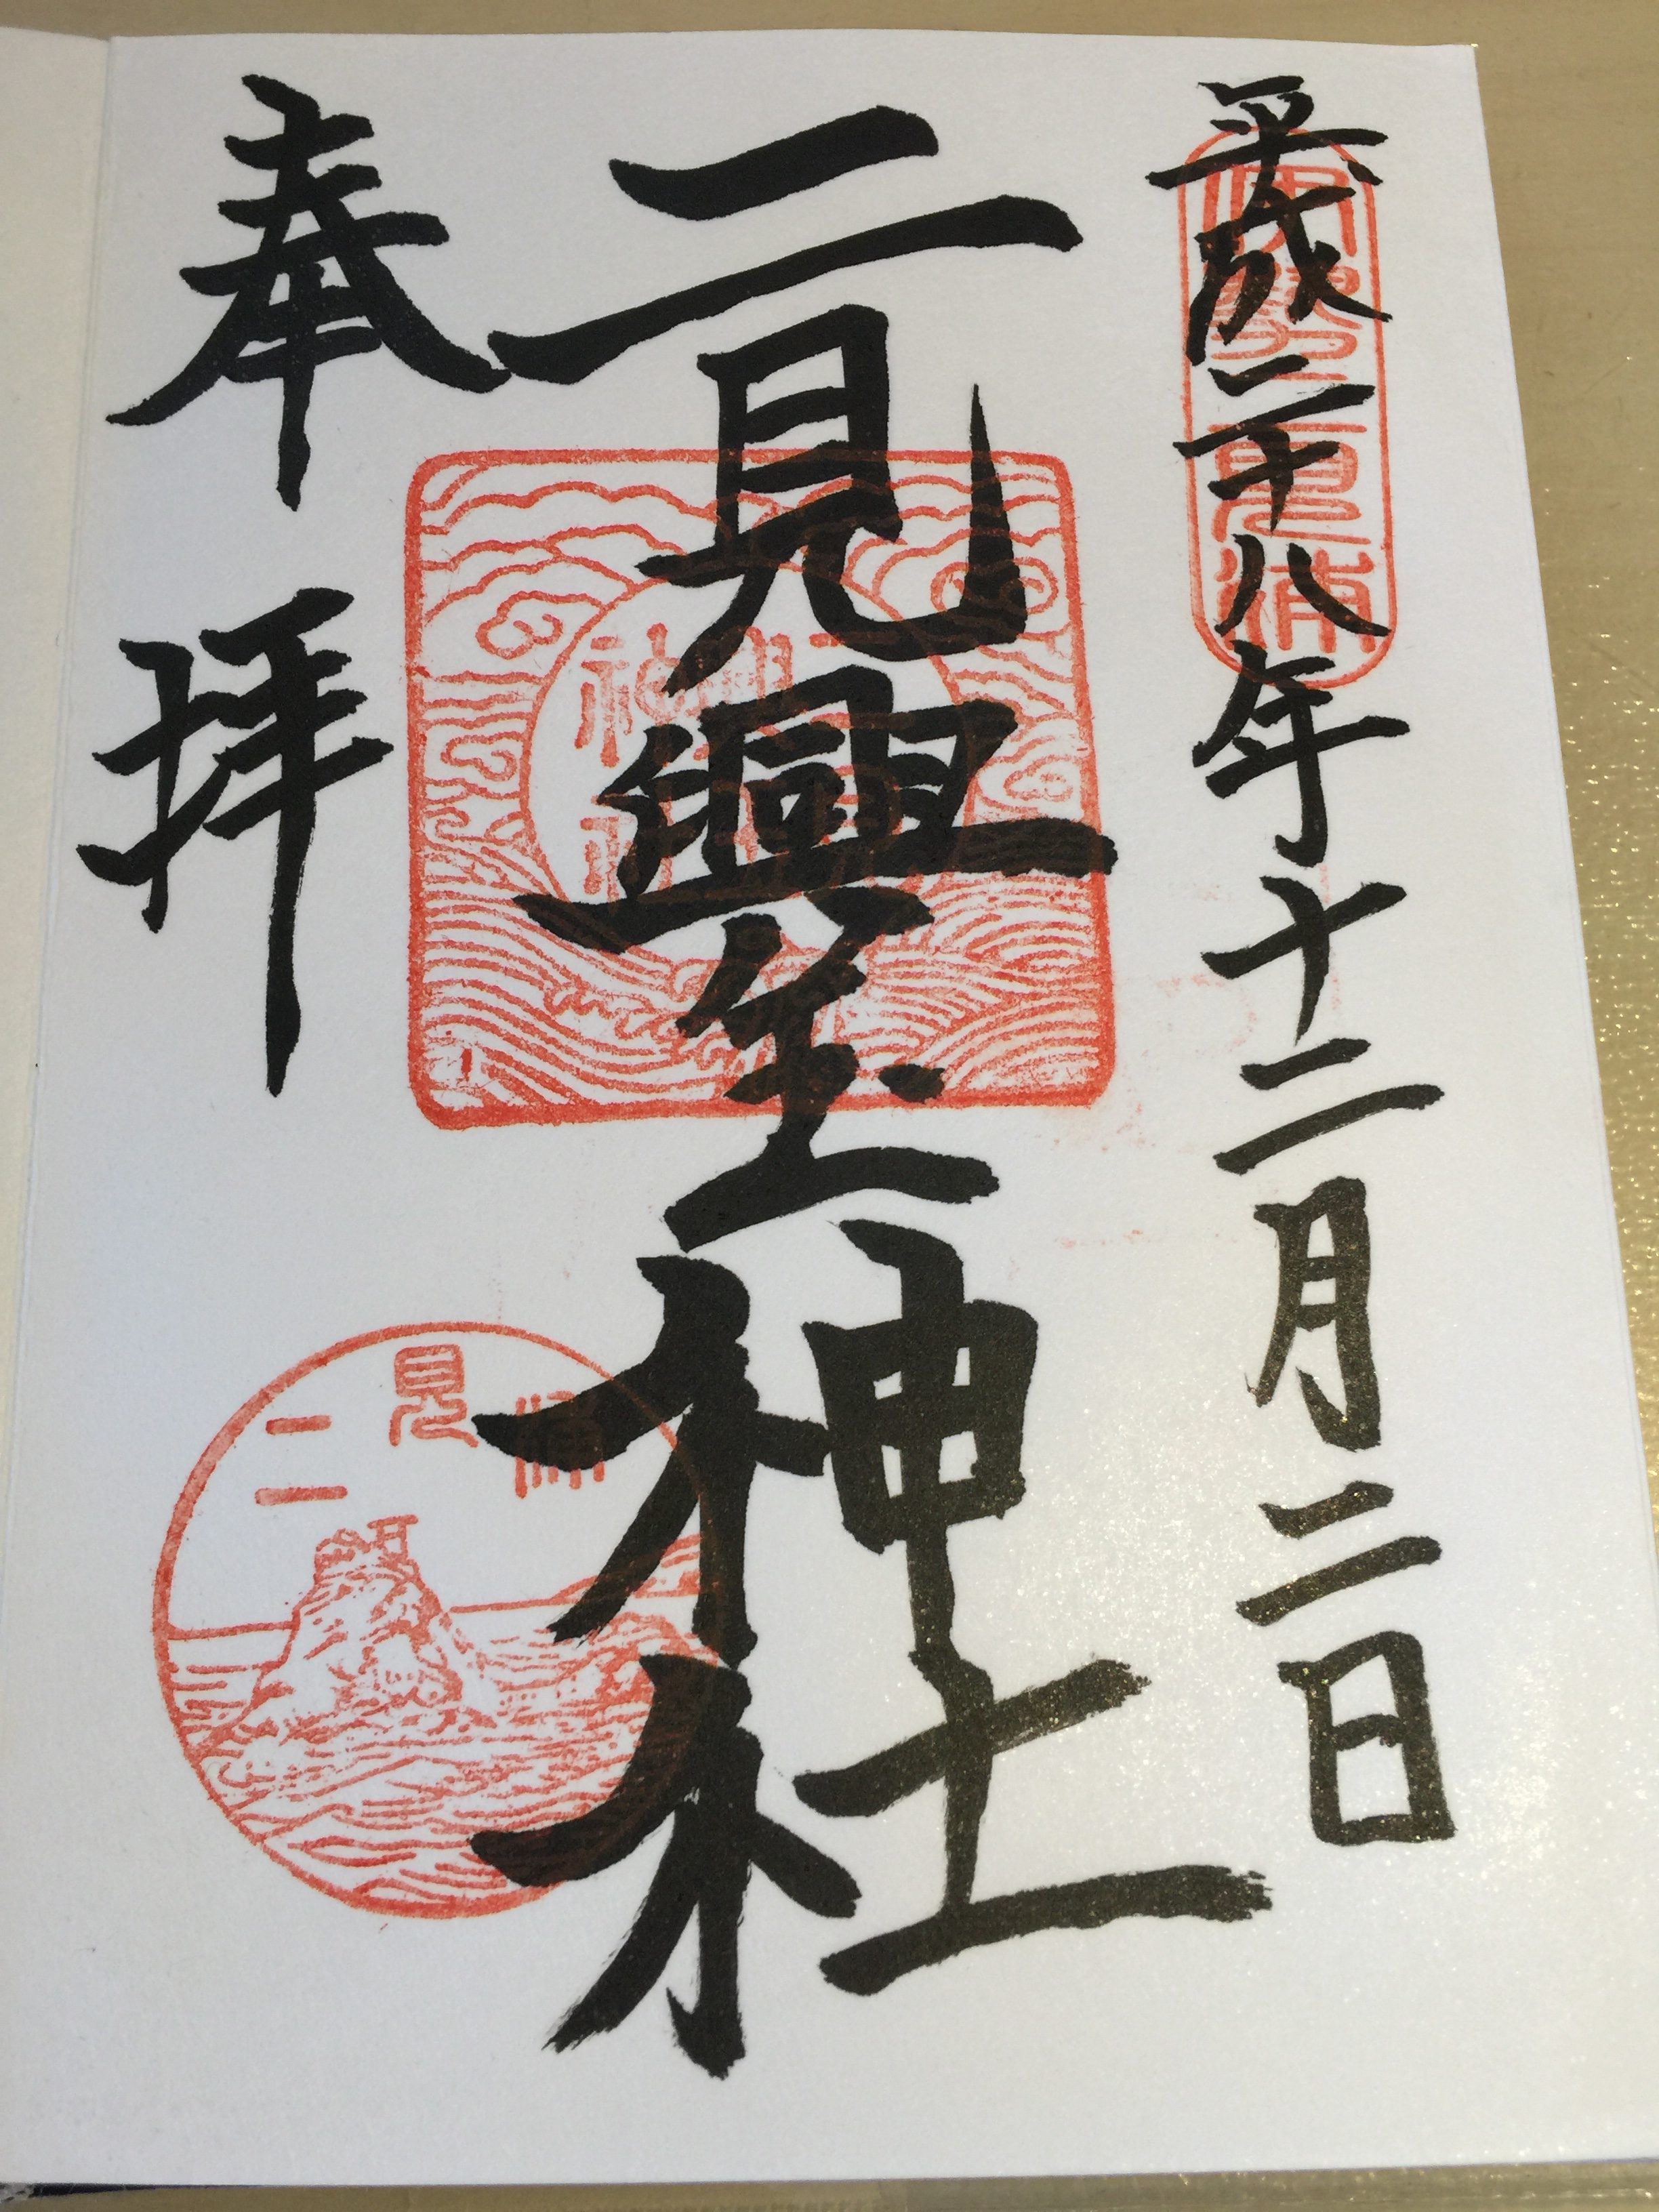 平成二十八年十二月二日
伊勢二見浦
二見興玉神社
二見
興玉
神社
奉拝
二見浦